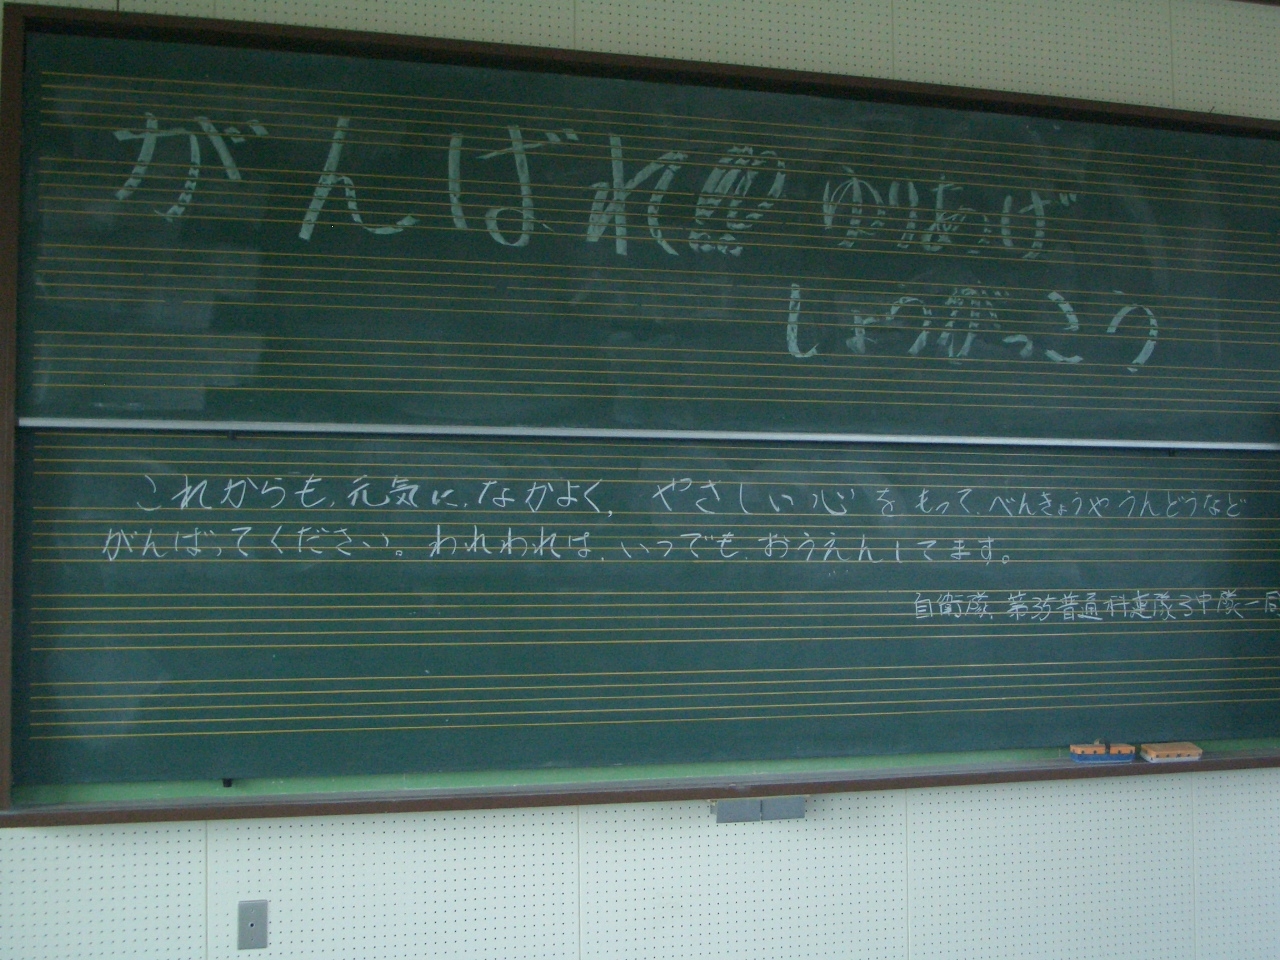 がんばれ!!! ゆりあげ
しょうがっこう
これからも、元気に、なかよく、やさしい心をもって、べんきょうやうんどうなど
がんばってください。われわれは、いつでも、おうえんしてます。
自衛隊 第33普通科連隊3中隊一同